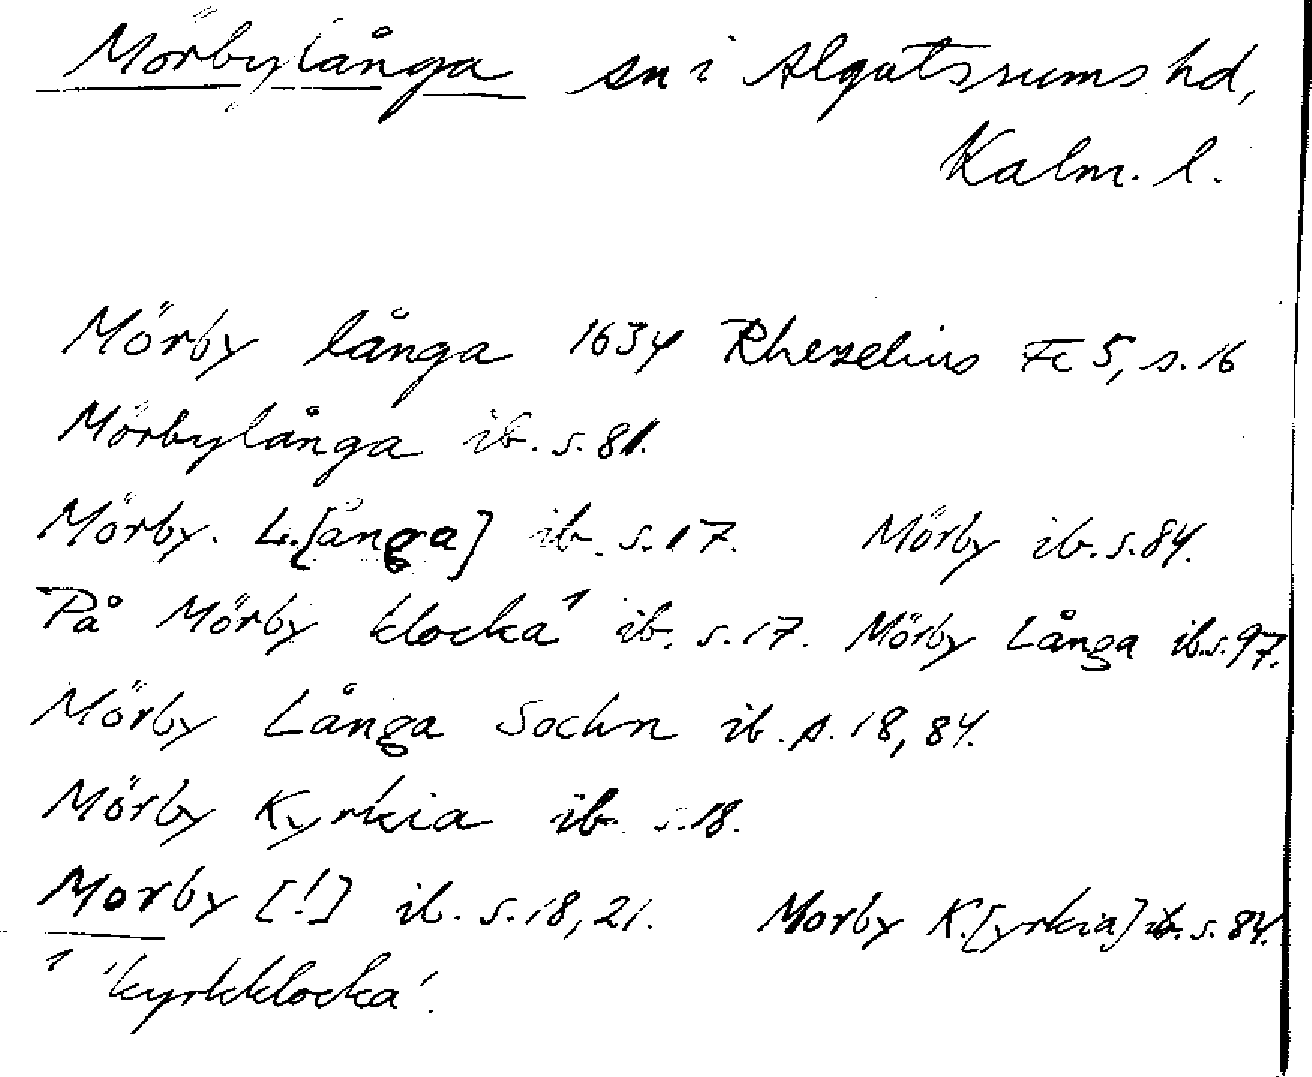 Mörbylånga sn i Algutsrums hd,
Kalm. l.
Mörby långa 1634 Rhezelius Fc 5, s. 16
Mörbylånga ib. s. 81.
Mörby. L.[ånga] ib. s. 17. Mörby ib. s. 84.
På Mörby klocka¹ ib. s. 17. Mörby Långa ib. s. 97.
Mörby Långa Sochn ib. s. 18, 84.
Mörby Kyrkia ib s. 18.
Morby [!] ib. s. 18, 21. Morby K.[yrkia] ib. s. 84.
¹ 'kyrkklocka'.